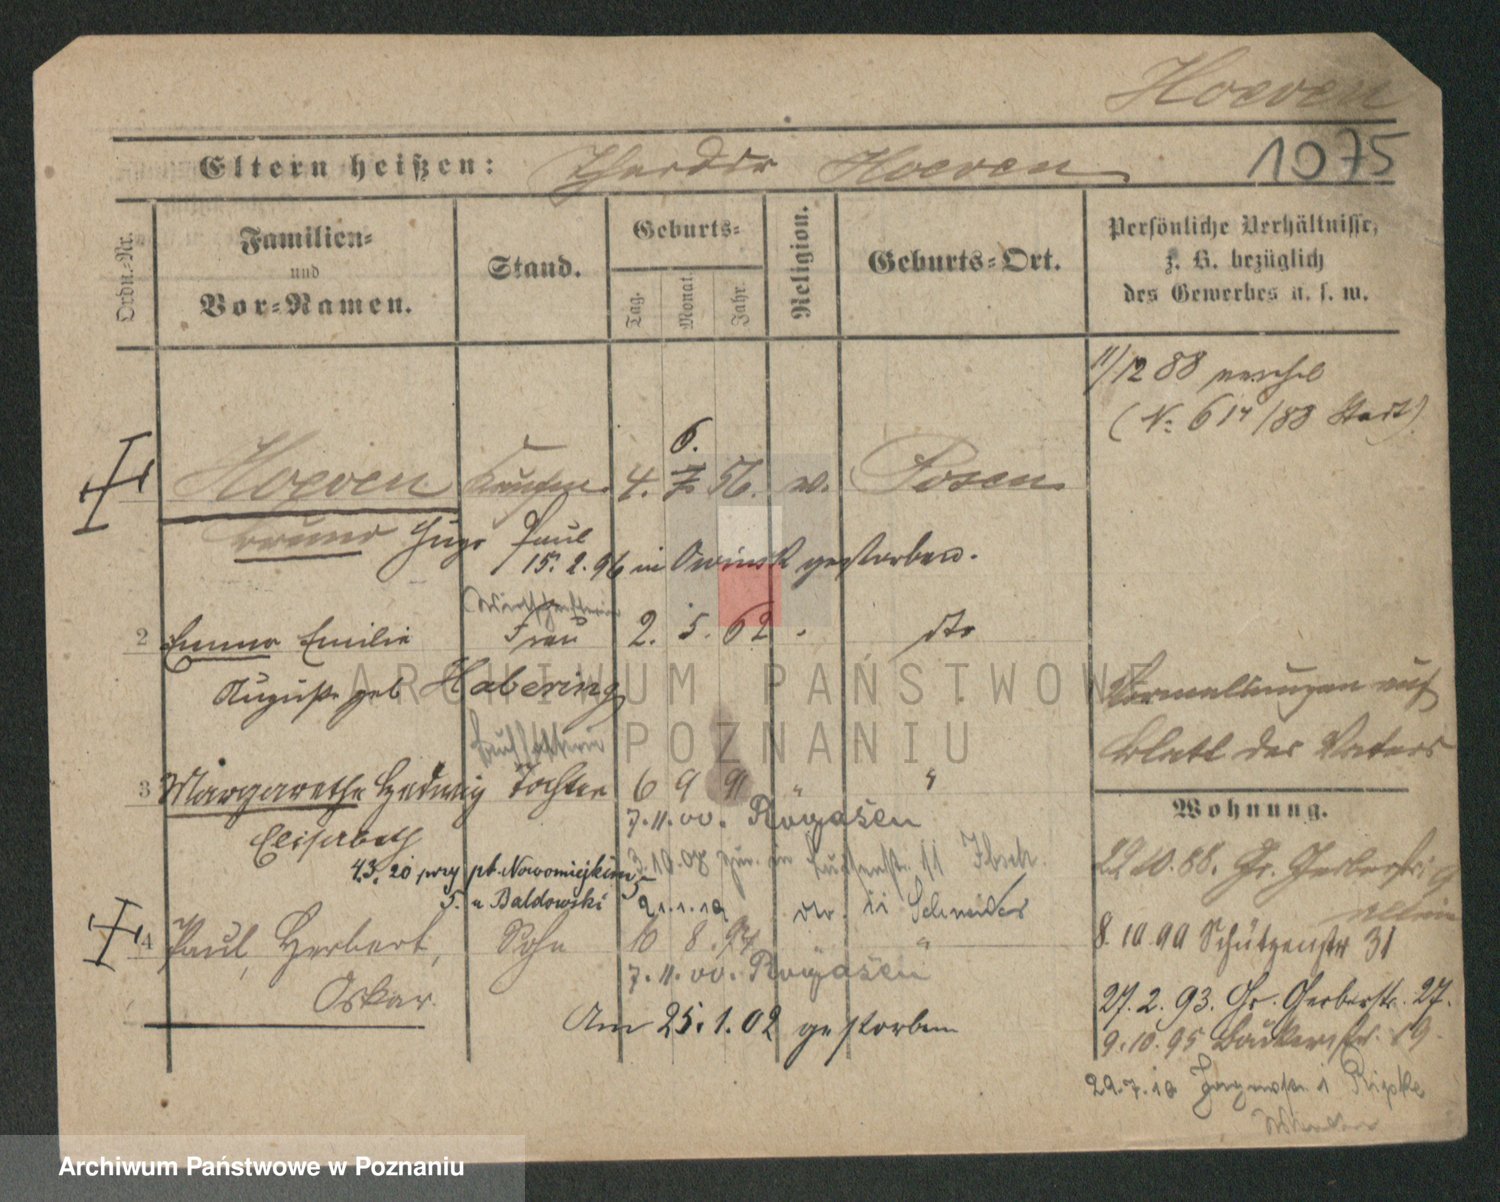 Hoeven
1075
Eltern heißen: Theodor Hoeven
Ordn.-Nr.
Familien-
und
Vor-Namen.
Stand.
Geburts-
Tag.
Monat.
Jahr.
Religion.
Geburts-Ort.
Persönliche Verhältnisse,
z. B. bezüglich
des Gewerbes u. s. w.
11/12 88
(N: 617/88 Stadt)
6.
Hoeven Kaufm. 4. 7. 56. ev. Posen
Bruno Hugo Paul
15. 2. 96 in Owinsk gestorben.
Wirtschafterin
2 Emma Emilie Frau 2. 5. 62 dto
Auguste geb Habering
Vermerkungen auf
Blatt des Vaters
Buchhalterin
3 Margarethe Hedwig Tochter 6 9 91 " "
Wohnung.
7. 11. 00. Rogasen
Elisabeth
22. 10. 88. Gr. Gerberstr. 9
4.3. 20 przy pl. Nowomiejskim 5
3. 10. 08 zur. in 11
5. u Baldowski 21.1.12 11 Schneider
4 Paul, Herbert, Sohn 10 8. 94 " "
8. 10. 90 Schützenstr 31
7. 11. 00. Rogasen
Oskar.
27. 2. 93. Gr. Gerberstr. 27.
Am 25. 1. 02 gestorben
9. 10. 95 Bäckerstr. 19.
29. 7. 10 Ripke
ARCHIWUM PAŃSTWOWE
W POZNANIU
Archiwum Państwowe w Poznaniu